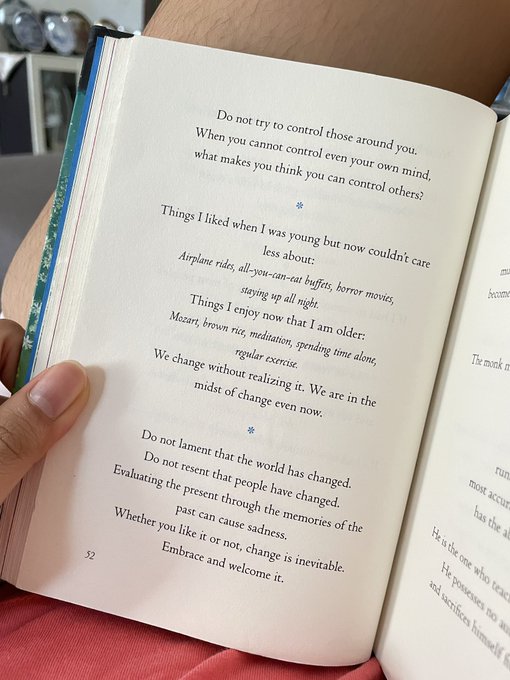 Do not try to control those around you.
When you cannot control even your own mind,
what makes you think you can control others?
*
Things I liked when I was young but now couldn't care
less about:
Airplane rides, all-you-can-eat buffets, horror movies,
staying up all night.
Things I enjoy now that I am older:
Mozart, brown rice, meditation, spending time alone,
regular exercise.
We change without realizing it. We are in the
midst of change even now.
*
Do not lament that the world has changed.
Do not resent that people have changed.
Evaluating the present through the memories of the
past can cause sadness.
Whether you like it or not, change is inevitable.
Embrace and welcome it.
52
become
The monk
run
most accur
has the
He is the one who
He possesses no
and sacrifices himself